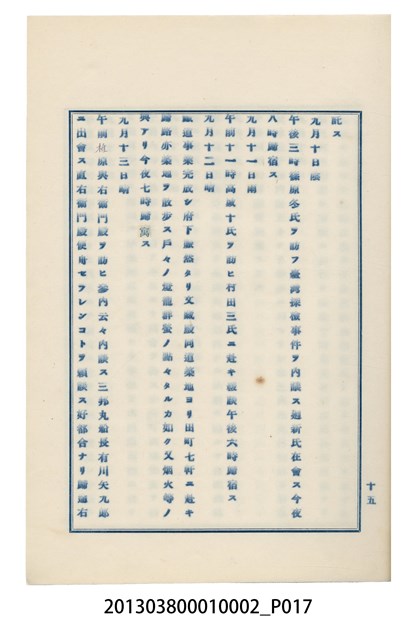 託ス
九月十日陰
午後三時篠原冬氏ヲ訪フ臺灣探偵事件ヲ内談ス過新氏在會ス今夜
八時歸宿ス
九月十一日雨
午前十一時高嶽十氏ヲ訪ヒ村田三氏ニ赴キ緩談午後六時歸宿ス
九月十二日晴
鐵道事業完成シ府下賑然タリ文蔵殿同道築地ヨリ田町七軒ニ赴キ
歸路亦築地ヲ散歩ス戸々ノ燈籠群螢ノ點々タルカ如ク又烟火等ノ
興アリ今夜七時歸寓ス
九月十三日晴
午前桂原與右衞門殿ヲ訪ヒ參内云々内談ス三邦丸船長有川矢九郎
ニ出會ス直右衞門殿使母セフレンコトヲ願談ス好都合ナリ歸道右
十五
201303800010002_P017